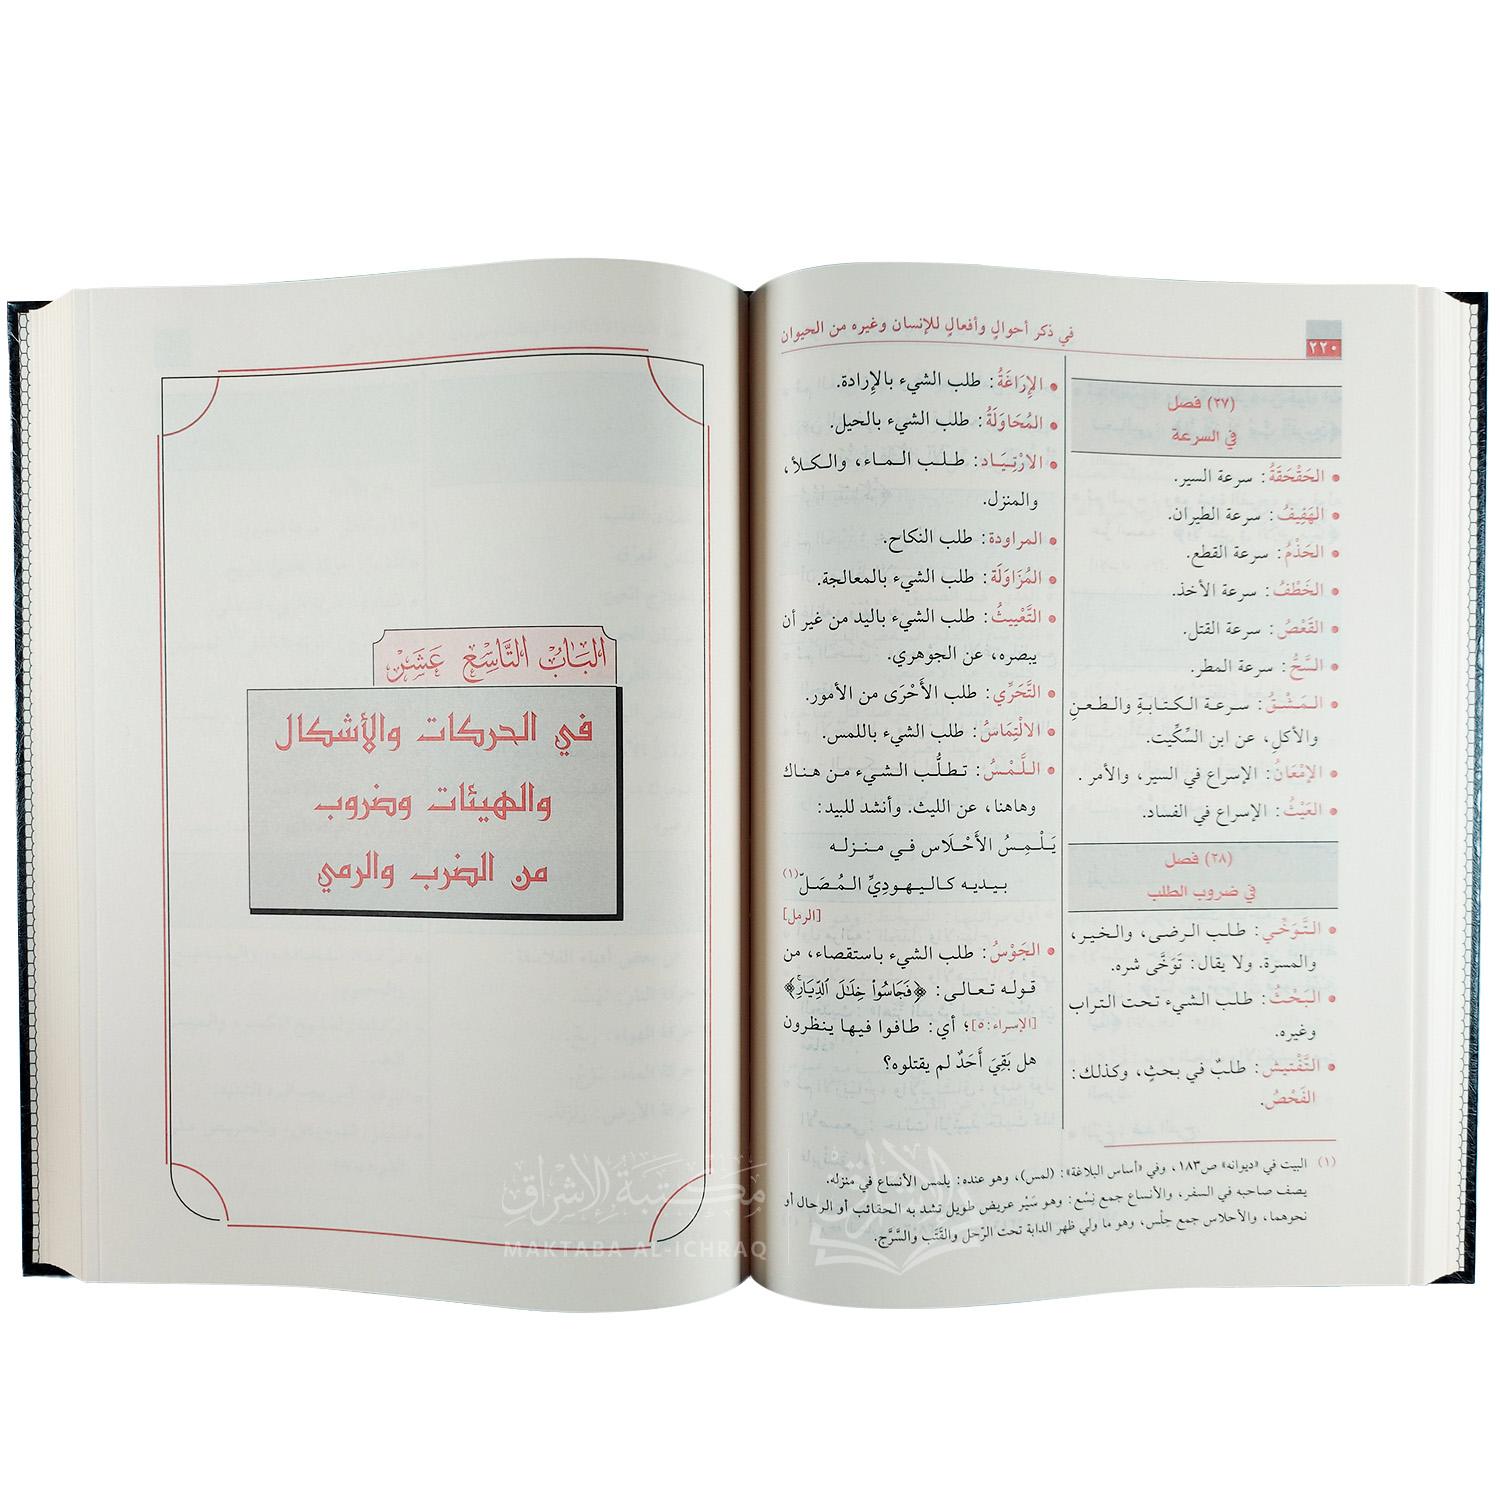 ٢٢٠
في ذكر أحوالٍ وأفعالٍ للإنسان وغيره من الحيوان
(٢٧) فصل
في السرعة
• الحَقْحَقَةُ: سرعة السير.
• الهَفِيفُ: سرعة الطيران.
• الحَذْمُ: سرعة القطع.
• الخَطْفُ: سرعة الأخذ.
• القَعْصُ: سرعة القتل.
• السَّحُّ: سرعة المطر.
• المَشْقُ: سرعة الكتابةِ والطعنِ
والأكلِ، عن ابن السِّكِّيت.
• الإمْعَانُ: الإسراع في السير، والأمر .
• العَيْثُ: الإسراع في الفساد.
(٢٨) فصل
في ضروب الطلب
• التَّوَخِّي: طلب الرضى، والخير،
والمسرة. ولا يقال: تَوَخَّى شره.
• البَحْثُ: طلب الشيء تحت التراب
وغيره.
• التَّفْتيش: طلبٌ في بحثٍ، وكذلك:
الفَحْصُ.
• الإرَاغَةُ: طلب الشيء بالإرادة.
• المُحَاوَلَةُ: طلب الشيء بالحيل.
• الارْتِيَاد: طلب الماء، والكلأ،
والمنزل.
• المراودة: طلب النكاح.
• المُزَاوَلَة: طلب الشيء بالمعالجة.
• التَّعْييثُ: طلب الشيء باليد من غير أن
يبصره، عن الجوهري.
• التَّحَرِّي: طلب الأَحْرَى من الأمور.
• الالْتِمَاسُ: طلب الشيء باللمس.
• اللَّمْسُ: تطلُّب الشيء من هناك
وهاهنا، عن الليث. وأنشد للبيد:
يَلْمِسُ الأَحْلَاس في منزله
بيديه كاليهوديِّ المُصَلّ(١)
[الرمل]
• الجَوْسُ: طلب الشيء باستقصاء، من
قوله تعالى: ﴿فَجَاسُوا۟ خِلَـٰلَ ٱلدِّيَارِ﴾
[الإسراء: ٥]؛ أي: طافوا فيها ينظرون
هل بَقِيَ أَحَدٌ لم يقتلوه؟
(١) البيت في «ديوانه» ص١٨٣، وفي «أساس البلاغة»: (لمس)، وهو عنده: يلمس الأنساع في منزله.
يصف صاحبه في السفر، والأنساع جمع نِسْع: وهو سَيْر عريض طويل تشد به الحقائب أو الرحال أو
نحوهما، والأحلاس جمع حِلْس، وهو ما ولي ظهر الدابة تحت الرّحل والقَتَب والسَّرَج.
البَابُ التَّاسِع عَشَر
في الحركات والأشكال
والهيئات وضروب
من الضرب والرمي
مكتبة الإشراق
MAKTABA AL-ICHRAQ